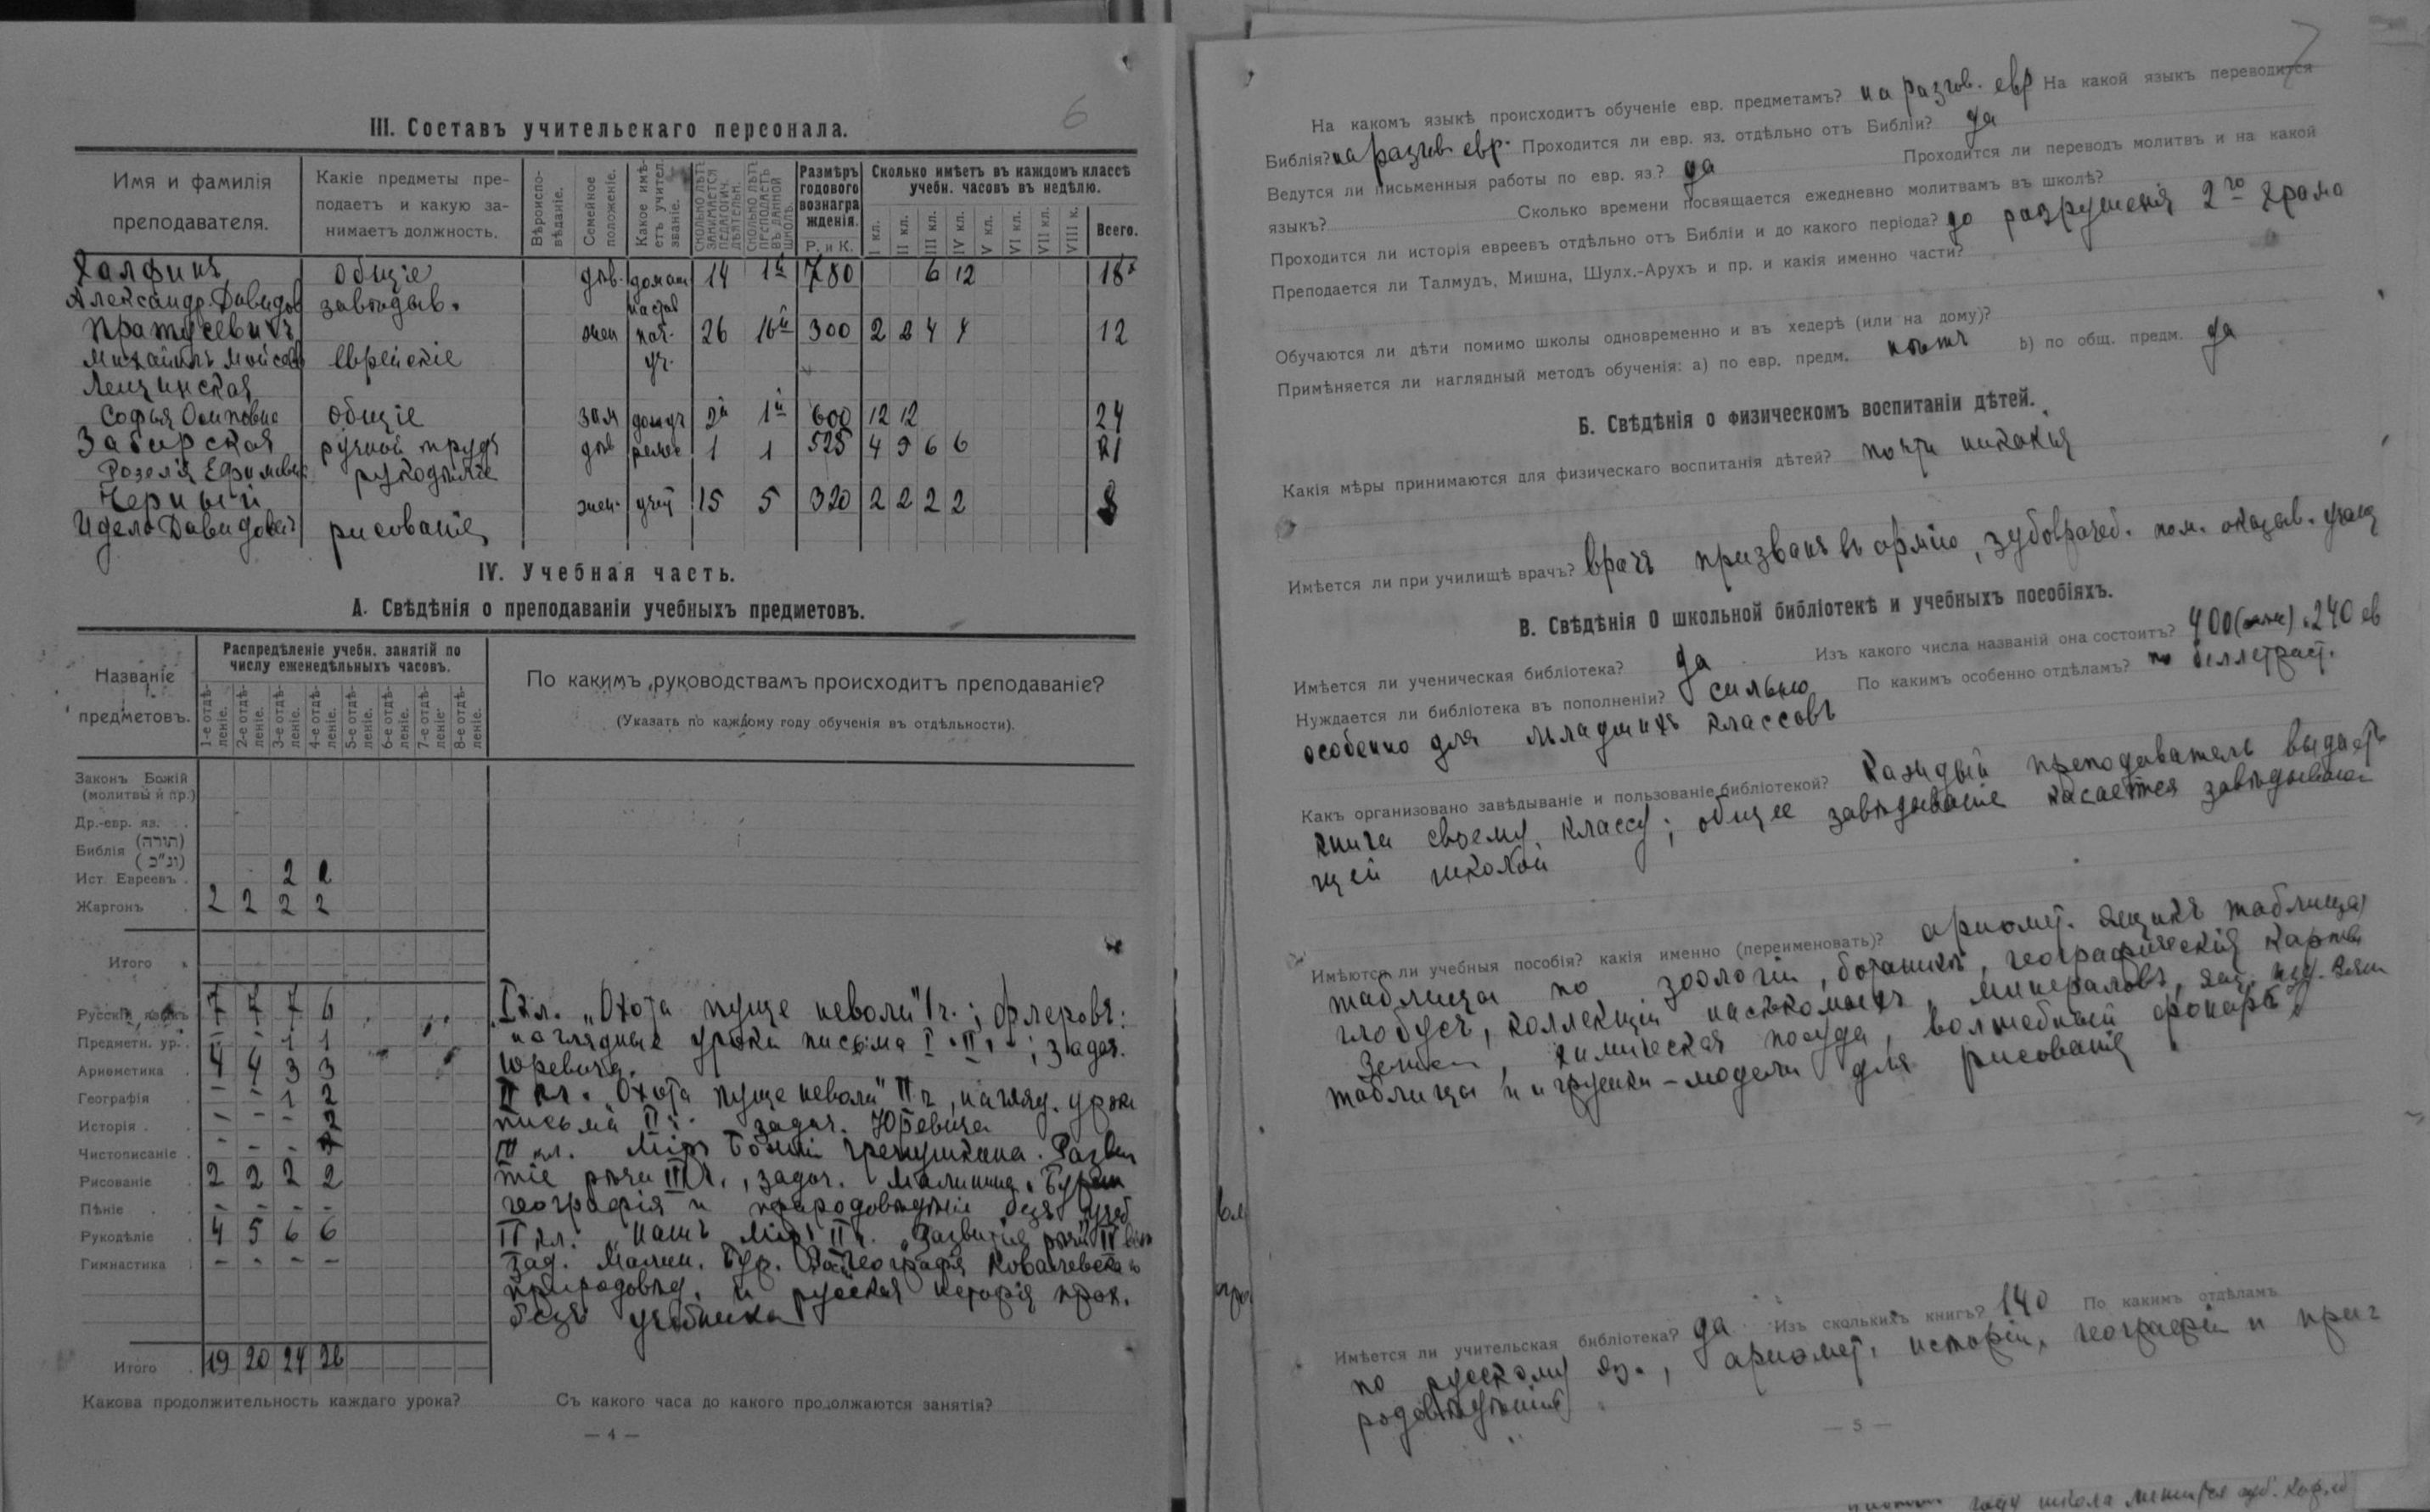 6
III. Составъ учительскаго персонала.
Имя и фамилія преподавателя.
Какіе предметы преподаетъ и какую занимаетъ должность.
Вѣроиспо-вѣданіе.
Семейное положеніе.
Какое имѣ-етъ учител. званіе.
Сколько лѣтъ занимается педагогич. дѣятельн.
Сколько лѣтъ преподаетъ въ данной школѣ.
Размѣръ годового вознагра жденія.
Р. и К.
Сколько имѣетъ въ каждомъ классѣ учебн. часовъ въ недѣлю.
I кл. II кл. III кл. IV кл. V кл. VI кл. VII кл. VIII к.
Всего.
Халфинъ общіе дѣв. домаш 14 780 6 12 18
Александр. Давидов завѣдыв. настав
Пратусевичъ жен 26 300 2 2 4 4 12
Михаилъ Моисеев еврейскіе уч.
Лещинская
Софья Осиповна общіе зам 600 12 12 24
Забирская ручной трудъ дѣв 1 1 525 4 5 6 6 21
Розелія Ефимовна рукодѣліе
Черный жен. учит 15 5 320 2 2 2 2 8
Идель Давидович рисованіе
IV. Учебная часть.
А. Свѣдѣнія о преподаваніи учебныхъ предметовъ.
Названіе предметовъ.
Распредѣленіе учебн. занятій по числу еженедѣльныхъ часовъ.
1-е отдѣ-леніе. 2-е отдѣ-леніе. 3-е отдѣ-леніе. 4-е отдѣ-леніе. 5-е отдѣ-леніе. 6-е отдѣ-леніе. 7-е отдѣ-леніе. 8-е отдѣ-леніе.
По какимъ руководствамъ происходитъ преподаваніе?
(Указать по каждому году обученія въ отдѣльности).
Законъ Божій
(молитвы и пр.)
Др.-евр. яз.
Библія (תורה)
(נ"כ)
Ист. Евреевъ 2 2
Жаргонъ 2 2 2 2
Итого
Русскій языкъ 7 7 7 6 I кл. „Охота пуще неволи" I ч.; Флеровъ:
Предметн. ур. – – 1 1 наглядные уроки письма I и II ; задач.
Ариѳметика 4 4 3 3 Юревича.
Географія – – 1 2 II кл. „Охота пуще неволи" II ч, нагляд. уроки
Исторія – – – 2 письма II ч. задач. Юревича
Чистописаніе – – – III кл. Міръ Божій Гречушкина. Разви
Рисованіе 2 2 2 2 тіе рѣчи III ч., задач. Малинина, Бурен
Пѣніе – – – – географія и природовѣдѣніе безъ учеб
Рукодѣліе 4 5 6 6 IV кл. „Нашъ Міръ" II ч. Развитіе рѣчи IV
Гимнастика – – – – Зад. Малин. Бур. География Ковалевская
природовѣд. и русская исторія прох.
безъ учебника
Итого 19 20 24 26
Какова продолжительность каждаго урока? Съ какого часа до какого продолжаются занятія?
— 4 —
7
На какомъ языкѣ происходитъ обученіе евр. предметамъ? на разгов. евр На какой языкъ переводится
Библія? на разгов. евр. Проходится ли евр. яз. отдѣльно отъ Библіи? да
Ведутся ли письменныя работы по евр. яз.? да Проходится ли переводъ молитвъ и на какой
языкъ? Сколько времени посвящается ежедневно молитвамъ въ школѣ?
Проходится ли исторія евреевъ отдѣльно отъ Библіи и до какого періода? до разрушенія 2го Храма
Преподается ли Талмудъ, Мишна, Шулх.-Арухъ и пр. и какія именно части?
Обучаются ли дѣти помимо школы одновременно и въ хедерѣ (или на дому)?
Примѣняется ли наглядный методъ обученія: а) по евр. предм. нѣтъ b) по общ. предм. да
Б. Свѣдѣнія о физическомъ воспитаніи дѣтей.
Какія мѣры принимаются для физическаго воспитанія дѣтей? почти никакія
Имѣется ли при училищѣ врачъ? врачъ призванъ въ армію, зубоврачеб. пом. оказыв. учащ
В. Свѣдѣнія о школьной библіотекѣ и учебныхъ пособіяхъ.
Имѣется ли ученическая библіотека? да Изъ какого числа названій она состоитъ? 400 240 ев
Нуждается ли библіотека въ пополненіи? сильно По какимъ особенно отдѣламъ? по беллетрист.
особенно для младшихъ классовъ
Какъ организовано завѣдываніе и пользованіе библіотекой? Каждый преподаватель выдаетъ
книги своему классу; общее завѣдываніе касается завѣдываю
щей школой
Имѣются ли учебныя пособія? какія именно (переименовать)? ариѳмет. ящикъ таблица,
таблицы по зоологіи, ботаникѣ, географическія карты
глобусъ, коллекціи насѣкомыхъ, минераловъ,
Земли, химическая посуда, волшебный фонарь,
таблицы и игрушки – модели для рисованія
Имѣется ли учительская библіотека? да Изъ сколькихъ книгъ? 140 По какимъ отдѣламъ
по русскому яз., ариѳмет., исторіи, географіи и при
родовѣдѣнію
— 5 —